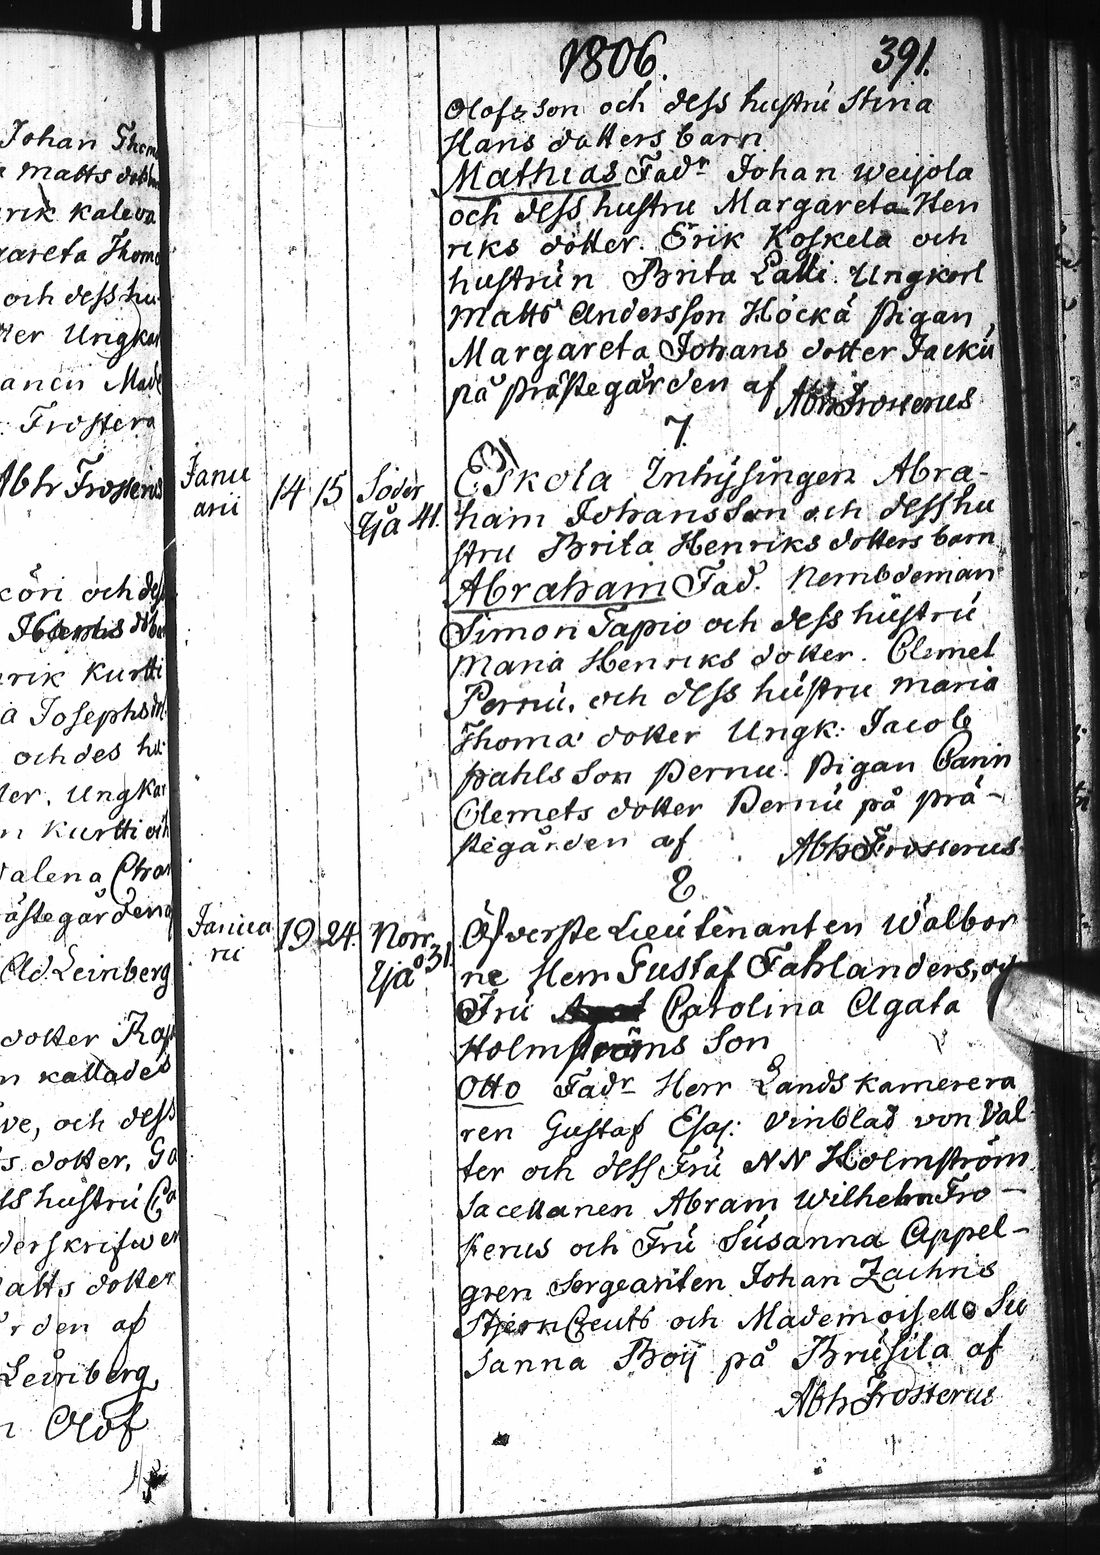 Johan Thom
Matts dotter
rik Kaleva
gareta Thoma
och dess hu
ter Ungkar
Made
Frostera
Abhr Frosterus
köri och dess
rik Kurtti
a Josephs
och des hu
ter. Ungkar
n Kurtti och
dalena Chr
ästegården af
Old Leinberg
dotter
n kallades
ve, och dess
s dotter.
ss hustru
derskrifwer
atts dotter
rden af
Leinberg
Olof
1806. 391.
Olofsson och dess hustru Stina
Hans dotters barn
Mathias Fadr Johan Weijola
och dess hustru Margareta Hen
riks dotter. Erik Koskela och
hustrun Brita Lalli. Ungkarl
Matts Andersson Höckä Pigan
Margareta Johans dotter Jacku
på prästegården af Abhr Frosterus
7.
Janu
arii 14 15 Söder
Yjå 41.
Eskola Inhysingen Abra-
ham Johansson och dess hu
stru Brita Henriks dotters barn
Abraham Fad. Nembdeman
Simon Tapio och dess hustru
Maria Henriks dotter. Clemet
Pernu. och dess hustru Maria
Thoma dotter Ungk: Jacob
Pahlsson Pernu. Pigan Carin
Clemets dotter Pernu på prä-
stegården af Abhr Frosterus
8
Janua
rii 19 24. Norr
Yjå 31.
Öfverste Lieutenanten Wälbor
ne Herr Gustaf Fahlanders, och
Fru Carolina Agata
Holmströms Son
Otto Fadr Herr Lands kamerera
ren Gustaf Esaj: Vinblad von Val
ter och dess Fru NN Holmström
Sacellanen Abram Wilhelm Fro-
sterus och Fru Susanna Appel-
gren Sergeanten Johan Zachris
StjernCreutz och Mademoiselle Su
sanna Boij på Brusila af
Abhr Frosterus